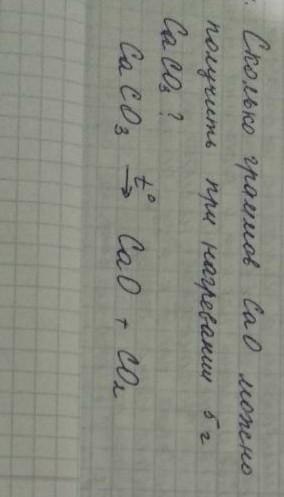 Сколько граммов CaO можно
получить при нагревании 5 г
CaCO₃ ?
CaCO₃ t° → CaO + CO₂